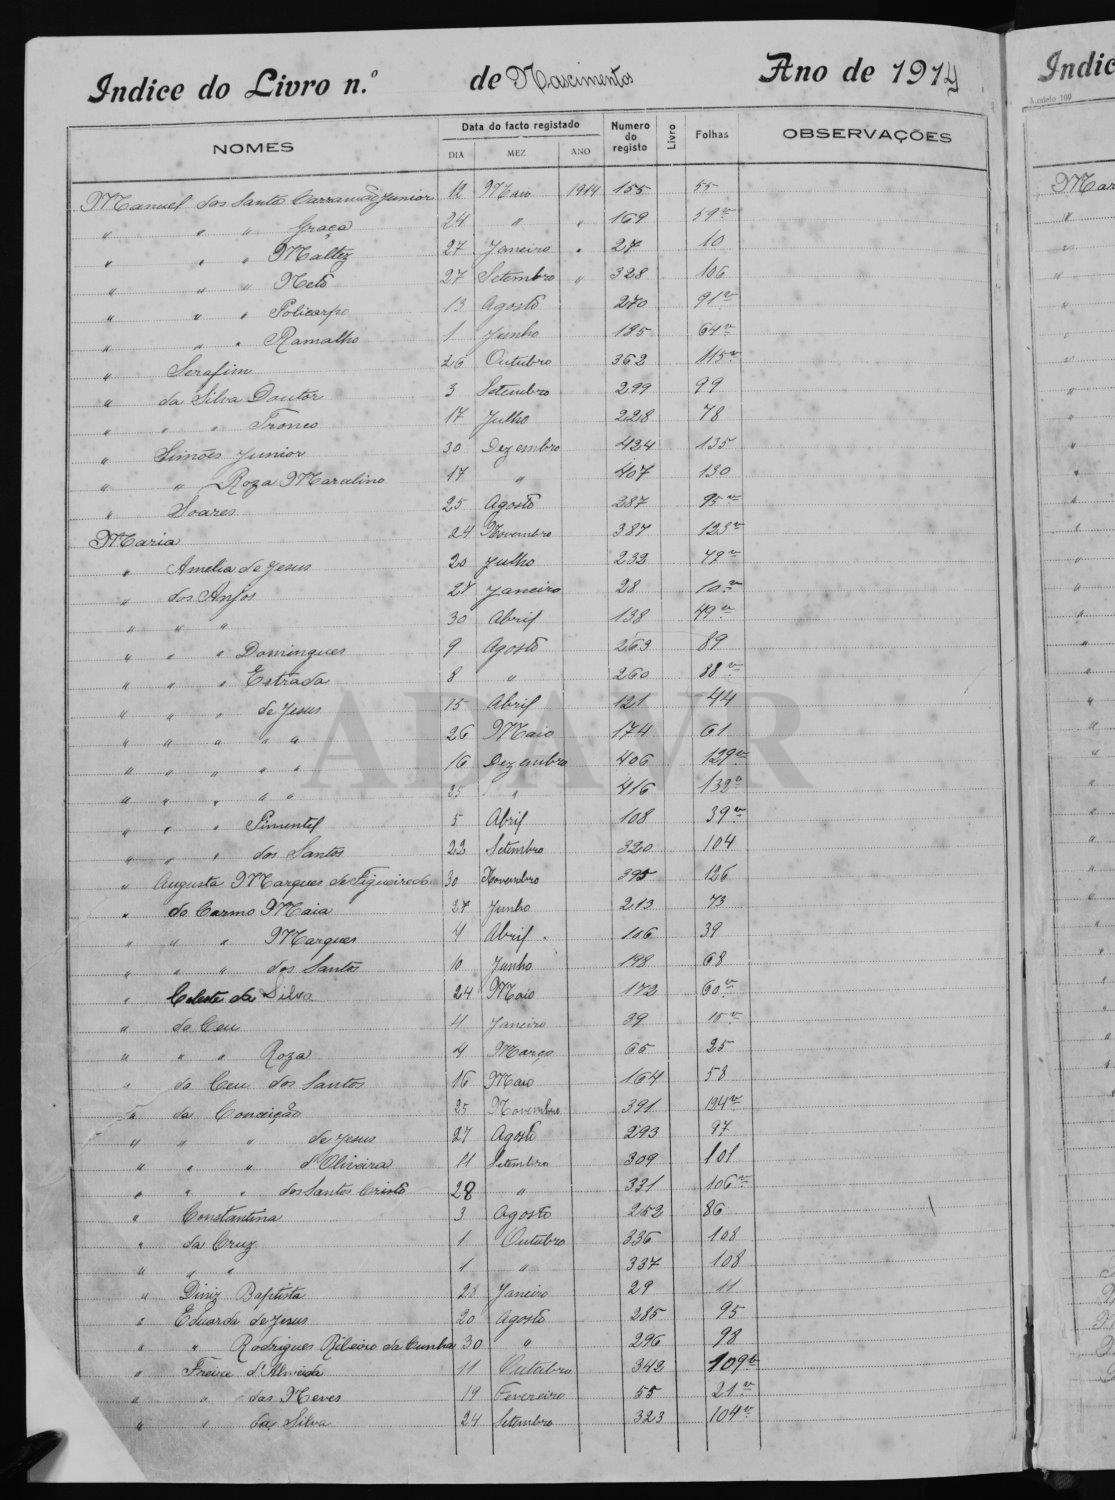 Indice do Livro n.º de Nascimentos Ano de 1914
NOMES Data do facto registado Numero do registo Livro Folhas OBSERVAÇÕES
DIA MEZ ANO
Manuel dos Santos Carrancho Junior 12 Maio 1914 155 55
" " " Graça 24 " " 169 59v
" " " Maltez 27 Janeiro " 27 10
" " " Neto 27 Setembro " 328 106
" " " Policarpo 13 Agosto 270 91v
" " " Ramalho 1 Junho 185 64v
" Serafim 26 Outubro 362 115v
" da Silva Doutor 3 Setembro 299 99
" " " Tronco 17 Julho 228 78
" Simões Junior 30 Dezembro 424 135
" " Roza Marcelino 17 " 407 130
" Soares 25 Agosto 287 95v
Maria 24 Novembro 387 123v
" Amelia de Jesus 20 Julho 232 79v
" dos Anjos 27 Janeiro 28 10v
" " " 30 Abril 138 49v
" " " Domingues 9 Agosto 263 89
" " " Estrada 8 " 260 88v
" " " de Jesus 15 Abril 121 44
" " " " " 26 Maio 174 61
" " " " " 16 Dezembro 406 129v
" " " " " 25 " 416 132v
" " " Pimentel 5 Abril 108 39v
" " " dos Santos 22 Setembro 320 104
" Augusta Marques de Figueiredo 30 Novembro 395 126
" do Carmo Maia 27 Junho 213 73
" " " Marques 4 Abril 106 39
" " " dos Santos 10 Junho 198 68
" Celeste da Silva 24 Maio 172 60v
" do Ceu 4 Janeiro 39 15v
" " " Roza 4 Março 65 25
" do Ceu dos Santos 16 Maio 164 58
" da Conceição 25 Novembro 391 124v
" " " de Jesus 27 Agosto 293 97
" " " d'Oliveira 11 Setembro 309 101
" " " dos Santos Cristo 28 " 331 106v
" Constantina 3 Agosto 252 86
" da Cruz 1 Outubro 336 108
" " " 1 " 337 108
" Diniz Baptista 28 Janeiro 29 11
" Eduarda de Jesus 20 Agosto 285 95
" " Rodrigues Ribeiro da Cunha 30 " 296 98
" Freire d'Almeida 11 Outubro 342 109v
" " das Neves 19 Fevereiro 55 21v
" " da Silva 24 Setembro 323 104v
ADAVR
Indic
Modelo 109
Mar